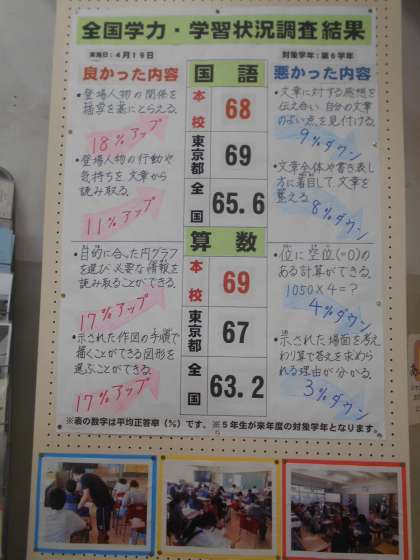 全国学力・学習状況調査結果
実施日：４月１９日
対象学年：第６学年
良かった内容
・登場人物の関係を
描写を基にとらえる。
18%アップ
・登場人物の行動や
気持ちを文章から
読み取る。
11%アップ
国語
本校
68
東京都
69
全国
65.6
悪かった内容
・文章に対する感想を
伝え合い、自分の文章
のよい点を見付ける。
9%ダウン
・文章全体や書き表し
方に着目して、文章を
整える。
8%ダウン
・目的に合った円グラフ
を選び必要な情報を
読み取ることができる。
17%アップ
・示された作図の手順で
描くことができる図形を
選ぶことができる。
17%アップ
算数
本校
69
東京都
67
全国
63.2
・位に空位(=0)の
ある計算ができる。
1050×4=?
4%ダウン
・示された場面を考え
わり算で答えを求めら
れる理由が分かる。
3%ダウン
※表の数字は平均正答率（％）です。※５年生が来年度の対象学年となります。